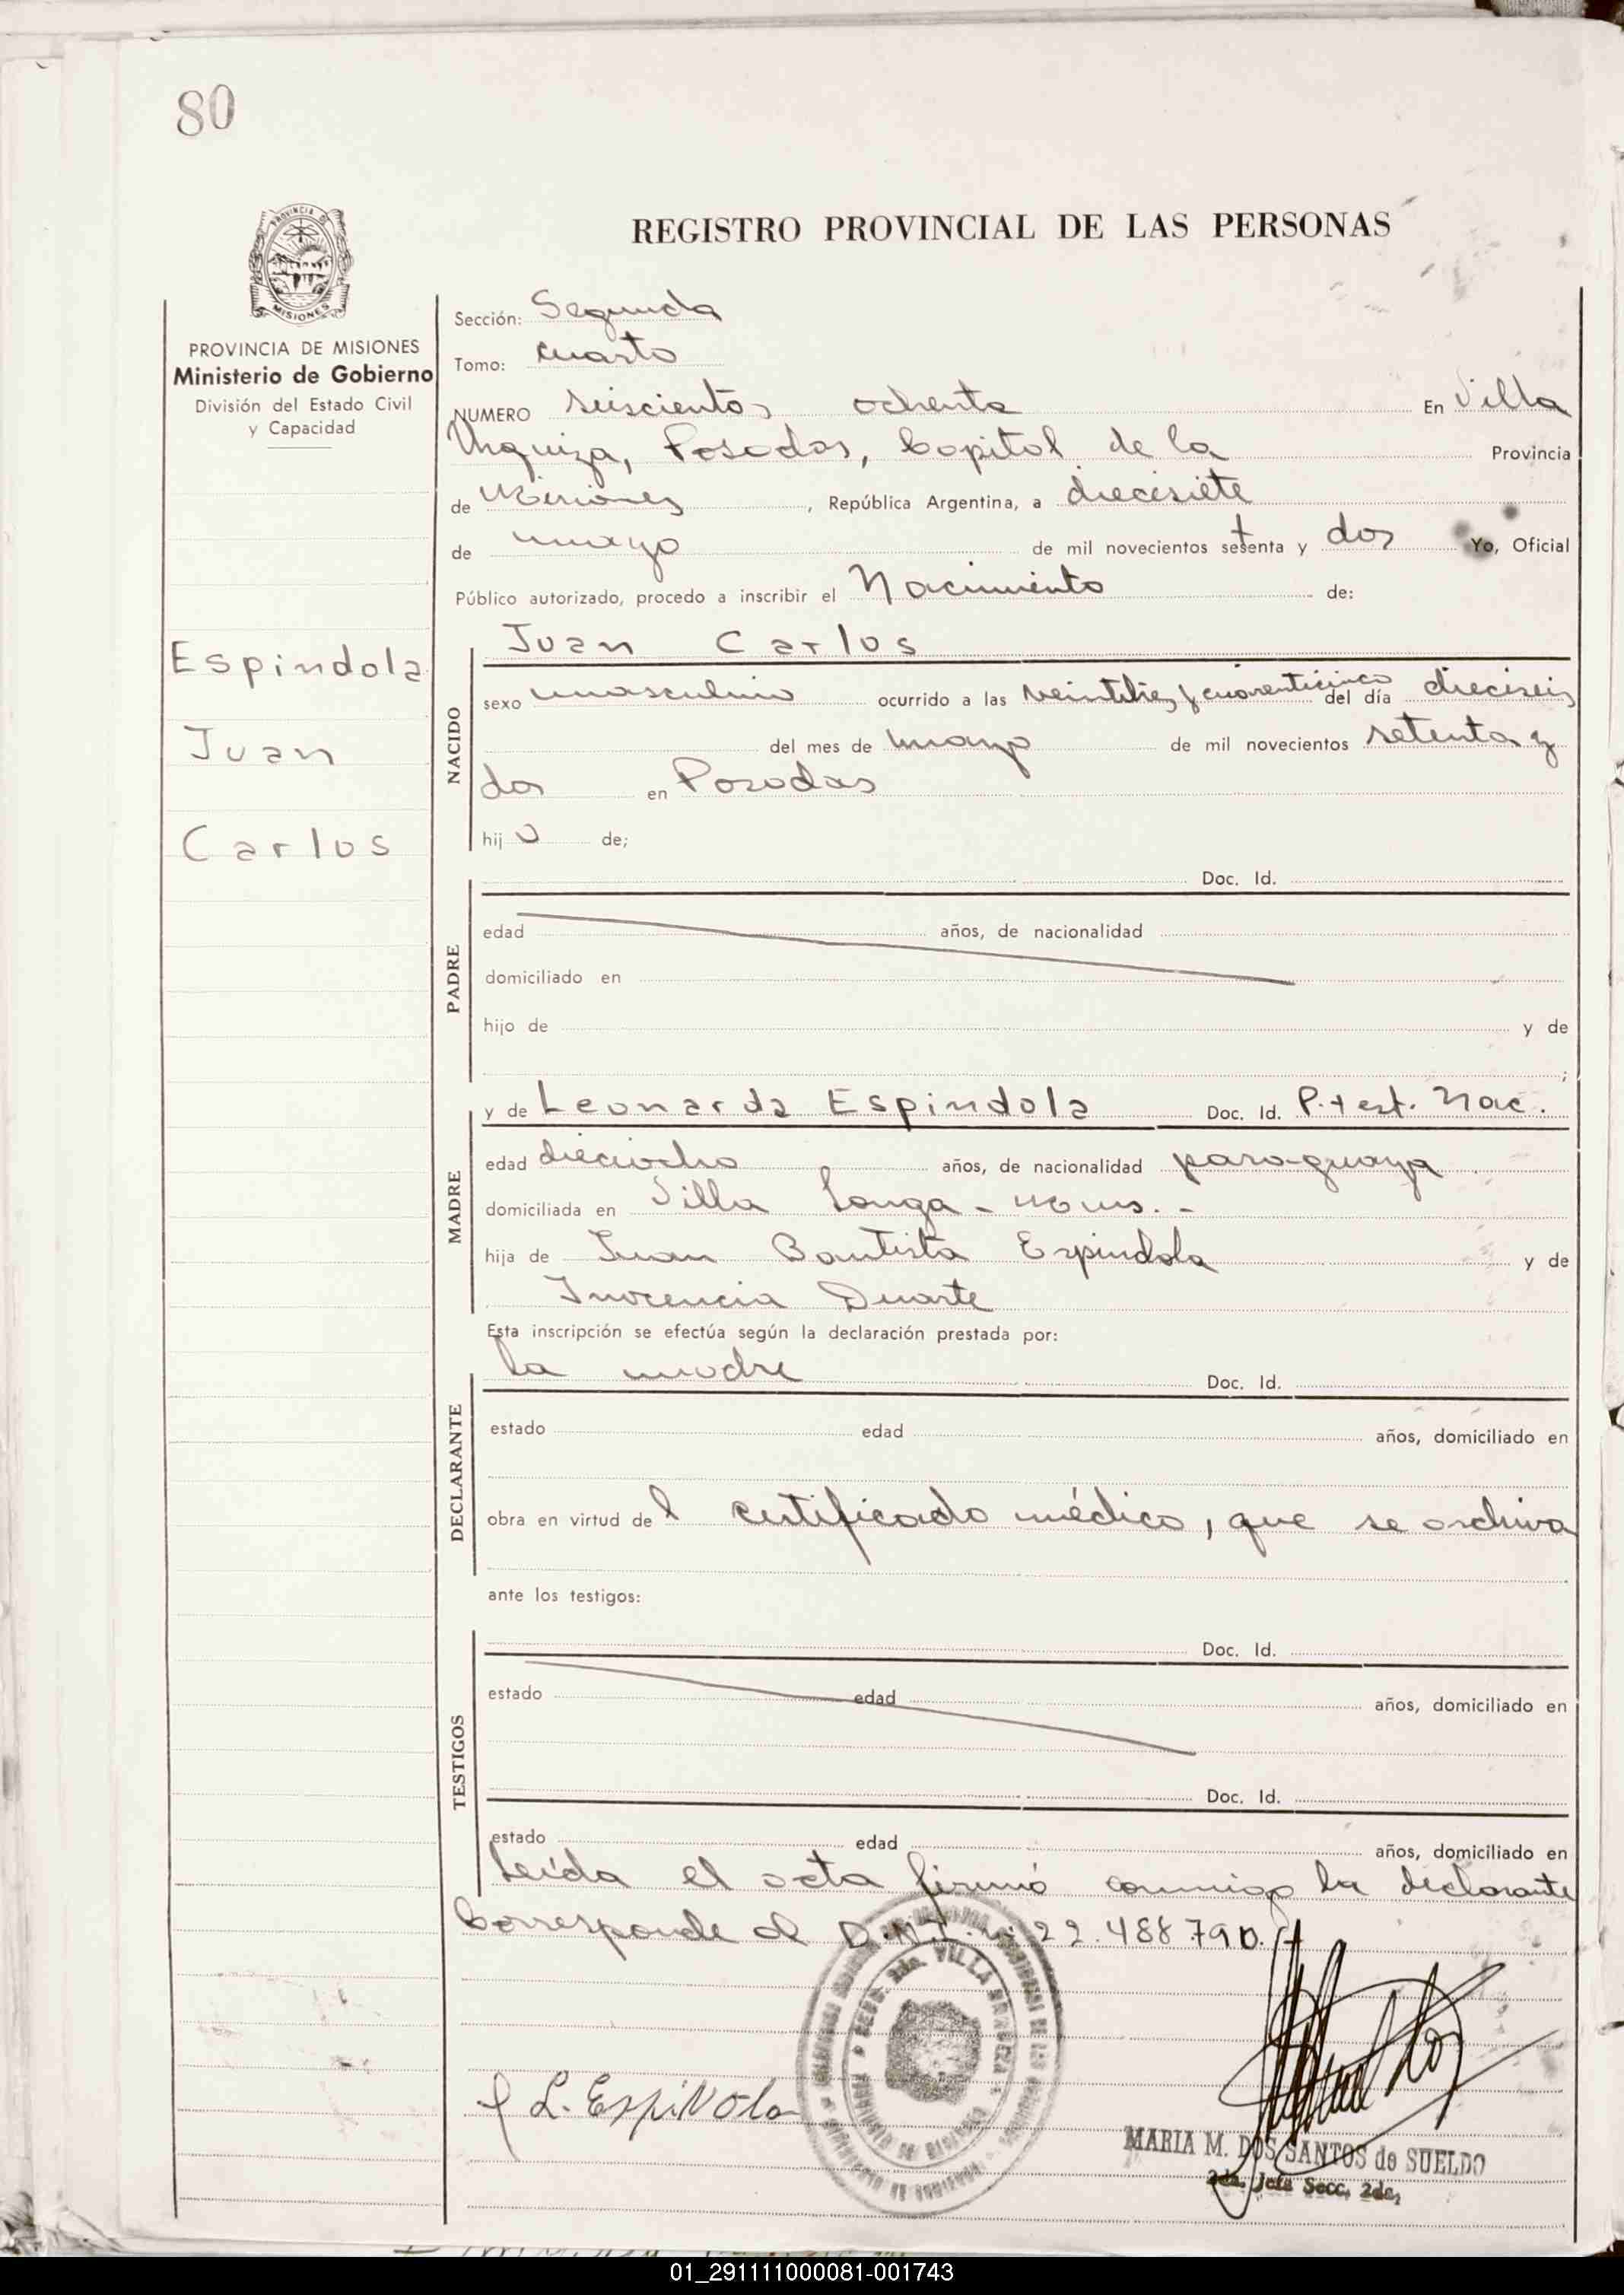 80
REGISTRO PROVINCIAL DE LAS PERSONAS
PROVINCIA DE
MISIONES
PROVINCIA DE MISIONES
Ministerio de Gobierno
División del Estado Civil
y Capacidad
Espindola
Juan
Carlos
Sección: Segunda
Tomo: cuarto
NUMERO seiscientos ochenta En Villa
Urquiza, Posadas, Capital de la Provincia
de Misiones, República Argentina, a diecisiete
de mayo de mil novecientos setenta y dos Yo, Oficial
Público autorizado, procedo a inscribir el Nacimiento de:
NACIDO
Juan Carlos
sexo masculino ocurrido a las veintitres y cuarenticinco del día dieciseis
del mes de mayo de mil novecientos setenta y
dos en Posadas
hij o de;
PADRE
Doc. Id.
edad años, de nacionalidad
domiciliado en
hijo de y de
;
MADRE
y de Leonarda Espindola Doc. Id. P. + est. Nac.
edad dieciocho años, de nacionalidad paraguaya
domiciliada en Villa Longa -
hija de Juan Bautista Espindola y de
Inocencia Duarte
Esta inscripción se efectúa según la declaración prestada por:
DECLARANTE
la madre Doc. Id.
estado edad años, domiciliado en
obra en virtud del certificado médico, que se archiva
ante los testigos:
TESTIGOS
Doc. Id.
estado edad años, domiciliado en
Doc. Id.
estado edad años, domiciliado en
Leída el acta firmó conmigo la declarante
Corresponde al D.N.I. n: 22.488790.
SECC. 2da. VILLA URQUIZA
L. EspiNola
MARIA M. DOS SANTOS de SUELDO
2da. Jefe Secc. 2da,
01_291111000081-001743